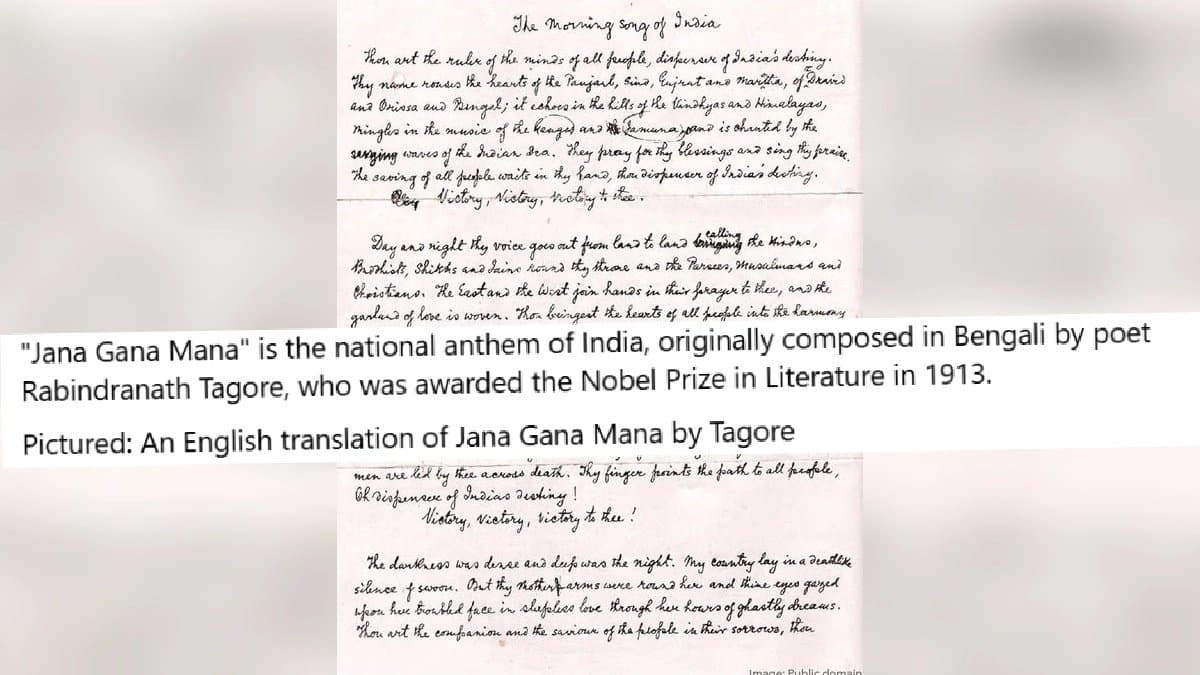 The Morning song of India
Thou art the ruler of the minds of all people, dispenser of India's destiny.
Thy name rouses the hearts of the Panjaub, Sind, Gujrat and Maratta, of Dravid
and Orissa and Bengal; it echoes in the hills of the Vindhyas and Himalayas,
mingles in the music of the Ganges and Jamuna, and is chanted by the
surging waves of the Indian Sea. They pray for thy blessings and sing thy praise.
The saving of all people waits in thy hand, thou dispenser of India's destiny.
Victory, Victory, Victory to thee.
Day and night thy voice goes out from land to land calling the Hindus,
Budhists, Shikhs and Jains round thy throne and the Parsees, Musulmans and
Christians. The East and the West join hands in their prayer to thee, and the
garland of love is woven. Thou bringest the hearts of all people into the harmony
"Jana Gana Mana" is the national anthem of India, originally composed in Bengali by poet
Rabindranath Tagore, who was awarded the Nobel Prize in Literature in 1913.
Pictured: An English translation of Jana Gana Mana by Tagore
men are led by thee across death. Thy finger points the path to all people,
Oh dispenser of India's destiny!
Victory, Victory, Victory to thee!
The darkness was dense and deep was the night. My country lay in a deathlike
silence of swoon. But thy mother arms were round her and thine eyes gazed
upon her troubled face in sleepless love through her hours of ghastly dreams.
Thou art the companion and the saviour of the people in their sorrows, thou
Image: Public domain